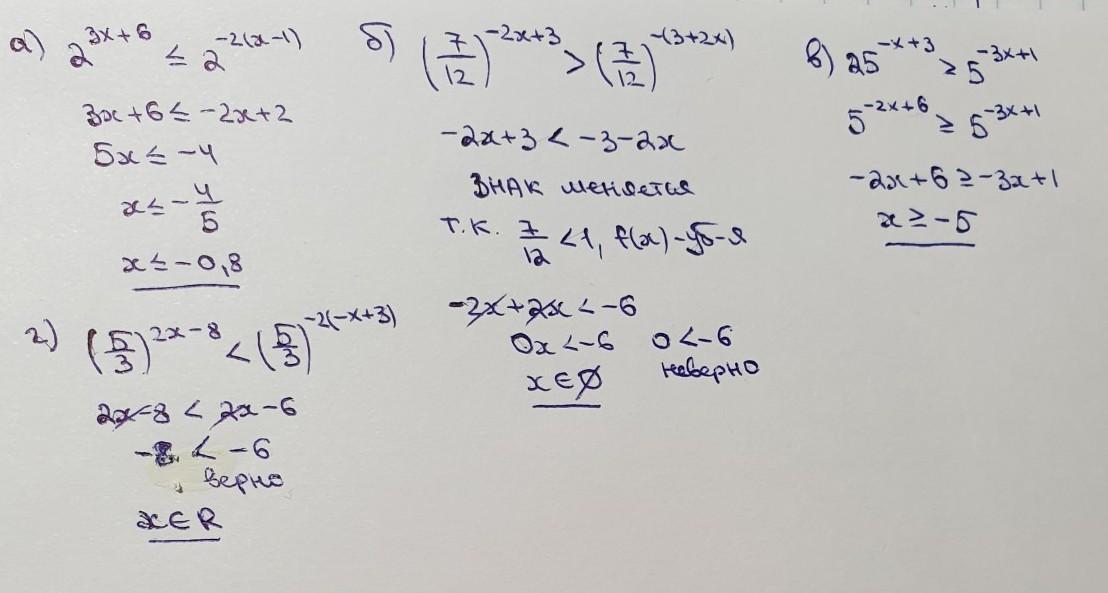 а) 2^{3x+6} ≤ 2^{-2(x-1)}
3x+6 ≤ -2x+2
5x ≤ -4
x ≤ -4/5
x ≤ -0,8
б) (7/12)^{-2x+3} > (7/12)^{-(3+2x)}
-2x+3 < -3-2x
знак меняется
т.к. 7/12 < 1, f(x) - уб-я
-2x+2x < -6
0x < -6 0 < -6
x ∈ ∅ неверно
в) 25^{-x+3} ≥ 5^{-3x+1}
5^{-2x+6} ≥ 5^{-3x+1}
-2x+6 ≥ -3x+1
x ≥ -5
г) (5/3)^{2x-8} < (5/3)^{-2(-x+3)}
2x-8 < 2x-6
-8 < -6
верно
x ∈ R